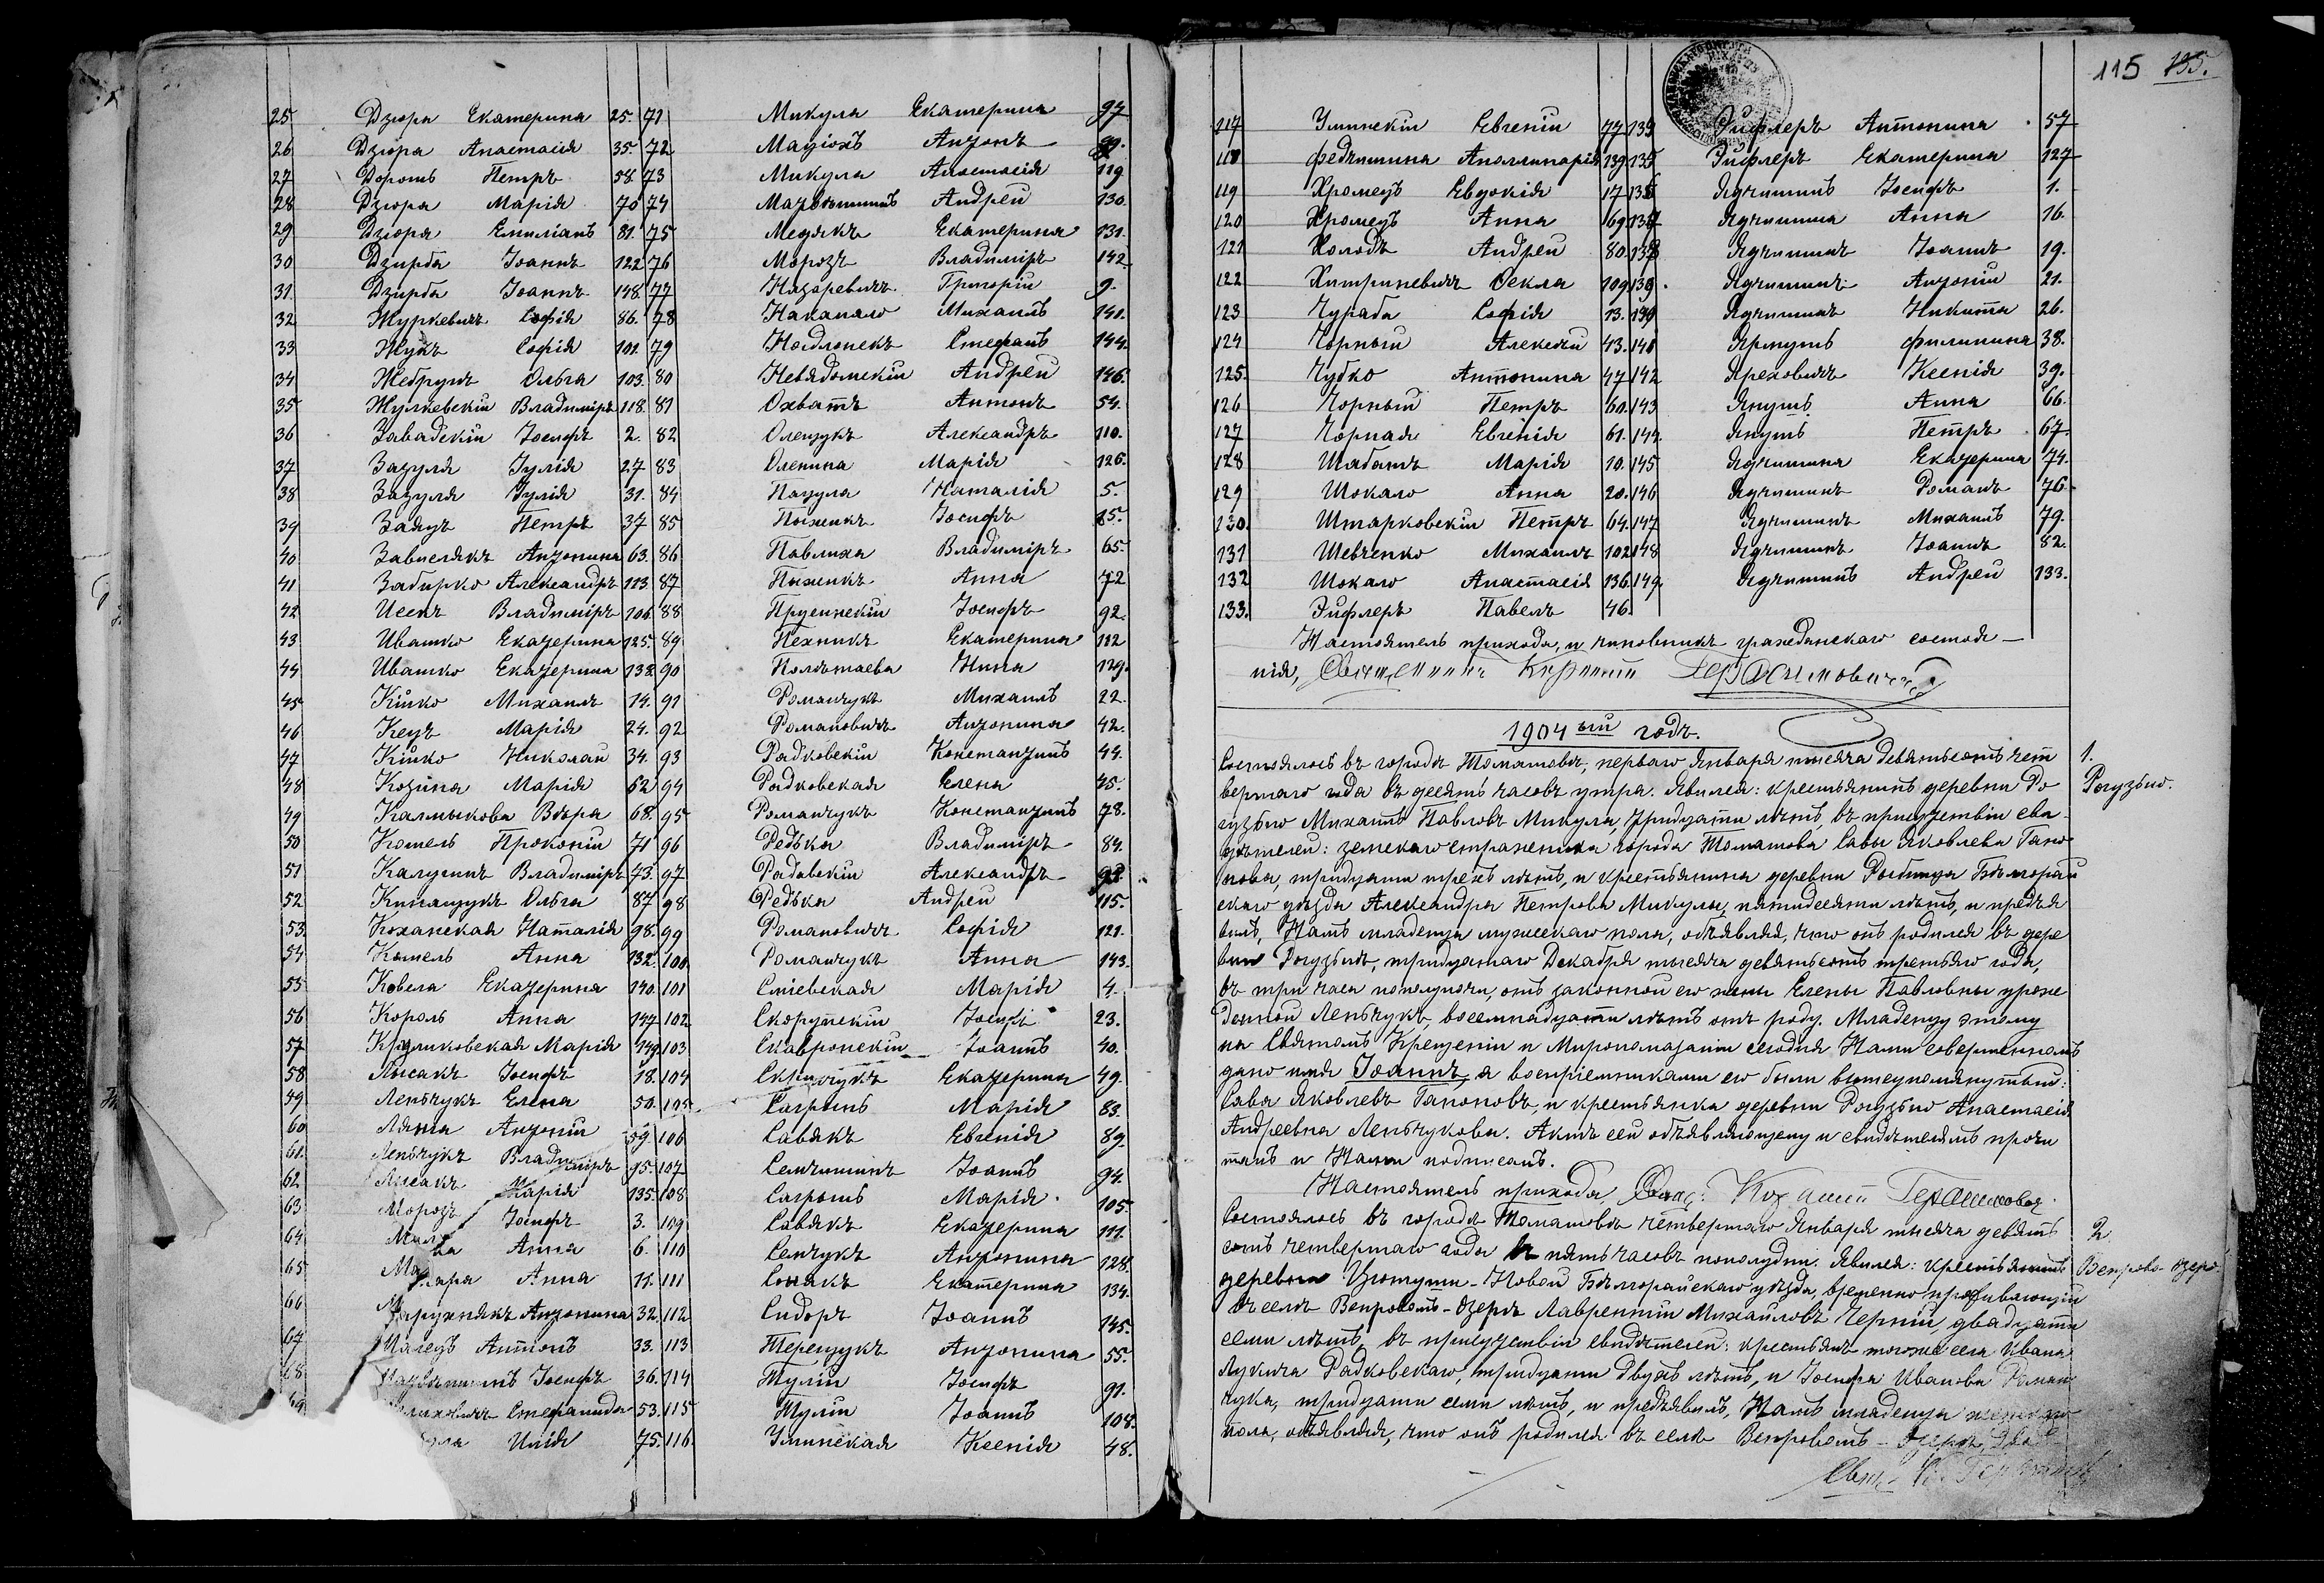 25 Дзюра Екатерина 25.
26 Дзюра Анастасія 35.
27 Дорошъ Петръ 58
28 Дзюра Марія 70
29 Дзюра Емиліанъ 81.
30 Дзирба Іоаннъ 122
31 Дзирба Іоаннъ 148.
32 Журкевичъ Софія 86.
33 Жукъ Софія 101.
34 Жебрунъ Ольга 103.
35 Жулкевскій Владиміръ 118.
36 Завадскій Іосифъ 2.
37 Зазуля Іулія 27
38 Зазуля Іулія 31.
39 Заяцъ Петръ 37
40 Завислякъ Антонина 63.
41 Забирко Александръ 113.
42 Исекъ Владиміръ 106.
43 Ивашко Екатерина 125.
44 Ивашко Екатерина 138.
45 Кійко Михаилъ 14.
46 Кецъ Марія 24.
47 Кійко Николай 34.
48 Козина Марія 62
49 Калмыкова Вѣра 68.
50 Кошель Прокопій 71
51 Калушъ Владиміръ 73.
52 Кинащукъ Ольга 87
53. Коханская Наталія 98.
54 Кошель Анна 132.
55 Ковела Екатерина 140.
56 Король Анна 147
57 Марія 149.
58 Лысакъ Іосифъ 18.
59 Леньчукъ Елена 50.
60 Антоній 59.
61. Леньчукъ Владиміръ 95.
62 Лысакъ Марія 135.
63 Морозъ Іосифъ 3.
64 Анна 6.
65 Анна 11.
66 Антонина 32.
67 Антонъ 33.
68 Іосифъ 36.
Стефанида 53.
Илія 75.
71 Микула Екатерина 97
72 Антонъ 99.
73 Микула Анастасія 119
74 Андрей 130.
75 Медякъ Екатерина 131.
76 Морозъ Владиміръ 142.
77 Назаревичъ Григорій 9.
78 Накапало Михаилъ 141.
79 Стефанъ 144.
80 Невядомскій Андрей 146.
81 Охватъ Антонъ 54.
82 Олещукъ Александръ 110.
83 Оленина Марія 126.
84 Пацула Наталія 5.
85 Пыжикъ Іосифъ 15.
86 Павлиха Владиміръ 65.
87 Пыжикъ Анна 72
88 Прусинскій Іосифъ 92.
89 Пехникъ Екатерина 112
90 Полѣтаева Нина 129.
91 Романчукъ Михаилъ 22.
92 Романовичъ Антонина 42.
93 Радковскій Константинъ 44.
94 Радковская Елена 45.
95 Романчукъ Константинъ 78.
96 Редька Владиміръ 84.
97 Радавскій Александръ 93.
98 Редька Андрей 115.
99 Романовичъ Софія 121.
100. Романчукъ Анна 143.
101 Марія 4.
102 Скорупскій Іосифъ 23.
103 Скавронскій Іоаннъ 40.
104 Екатерина 49.
105. Сагрышъ Марія 83.
106 Савякъ Евгенія 89.
107 Семчишинъ Іоаннъ 94.
108 Сагрышъ Марія 105.
109 Савякъ Екатерина 111.
110 Семчукъ Антонина 128.
111 Екатерина 134.
112 Сидоръ Іоаннъ 145.
113 Терещукъ Антонина 55.
114 Тулій Іосифъ 91.
115 Тулій Іоаннъ 108.
116. Улинская Ксенія 48.
115 135.
117 Улинскій Евгеній 77
118 Федчишина Аполлинарія 139
119 Хромецъ Евдокія 17
120 Хромецъ Анна 69.
121 Холодъ Андрей 80.
122 Ѳекла 109
123 Чураба Софія 13.
124 Чорный Алексѣй 43.
125. Чубко Антонина 47
126 Чорный Петръ 60.
127 Чорная Евгенія 61.
128 Шабатъ Марія 10.
129 Шокало Анна 20.
130. Штарковскій Петръ 64.
131 Шевченко Михаилъ 102
132 Шокало Анастасія 136.
133. Эйфлеръ Павелъ 46.
Эйфлеръ Антонина 57
135 Эйфлеръ Екатерина 127
Ядчишинъ Іосифъ 1.
Ядчишина Анна 16.
138 Ядчишинъ Іоаннъ 19.
139. Ядчишинъ Антоній 21.
Ядчишинъ Никита 26.
141 Ярмушъ Филиппина 38.
142 Яреховичъ Ксенія 39.
143 Янушъ Анна 66.
144. Янушъ Петръ 67.
145 Ядчишина Екатерина 74.
146 Ядчишинъ Романъ 76.
147 Ядчишинъ Михаилъ 79.
148 Ядчишинъ Іоаннъ 82.
149. Ядчишинъ Андрей 133.
Настоятель прихода, и чиновникъ гражданскаго состоя-
нія, Священникъ Герасимовичъ
1904ый годъ.
1.
Рогузьно.
Состоялось въ городѣ Томашовѣ, перваго Января тысяча девятьсотъ чет
вертаго года въ десять часовъ утра. Явился: крестьянинъ деревни Ро
гузьно Михаилъ Павловъ Микула, тридцати лѣтъ, въ присутствіи сви-
дѣтелей: земскаго стражника города Томашова Савы Яковлева Гапо
нова, тридцати трехъ лѣтъ, и крестьянина деревни Рыбница Бѣлгорай
скаго уѣзда Александра Петрова Микулы, пятидесяти лѣтъ, и предъя
вилъ, Намъ младенца мужескаго пола, объявляя, что онъ родился въ дере
вни Рогузьнѣ, тридцатаго Декабря тысяча девятьсотъ третьяго года,
въ три часа пополуночи, отъ законной его жены Елены Павловны урож
денной Леньчукъ, восемнадцати лѣтъ отъ роду. Младенцу этому
на Святомъ Крещеніи и Миропомазаніи сегодня Нами совершенномъ
дано имя Іоаннъ, а воспріемниками его были вышеупомянутый:
Сава Яковлевъ Гапоновъ, и крестьянка деревни Рогузьно Анастасія
Андреевна Леньчукова. Актъ сей объявляющему и свидѣтелямъ прочи
танъ и Нами подписанъ.
Настоятель прихода Свящ. Герасимовичъ
2.
Вепрово-Озеро.
Состоялось въ городѣ Томашовѣ четвертаго Января тысяча девять
сотъ четвертаго года въ пять часовъ пополудни. Явился: крестьянинъ
деревни Цютуши-Новой Бѣлгорайскаго уѣзда, временно проживающій
въ селѣ Вепровомъ-Озерѣ Лаврентій Михайловъ Черній, двадцати
семи лѣтъ, въ присутствіи свидѣтелей: крестьянъ тогоже села Ивана
Лукича Радковскаго, тридцати двухъ лѣтъ, и Іосифа Иванова Роман
чука, тридцати семи лѣтъ, и предъявилъ, Намъ младенца
пола, объявляя, что онъ родился въ селѣ Вепровомъ-Озерѣ,